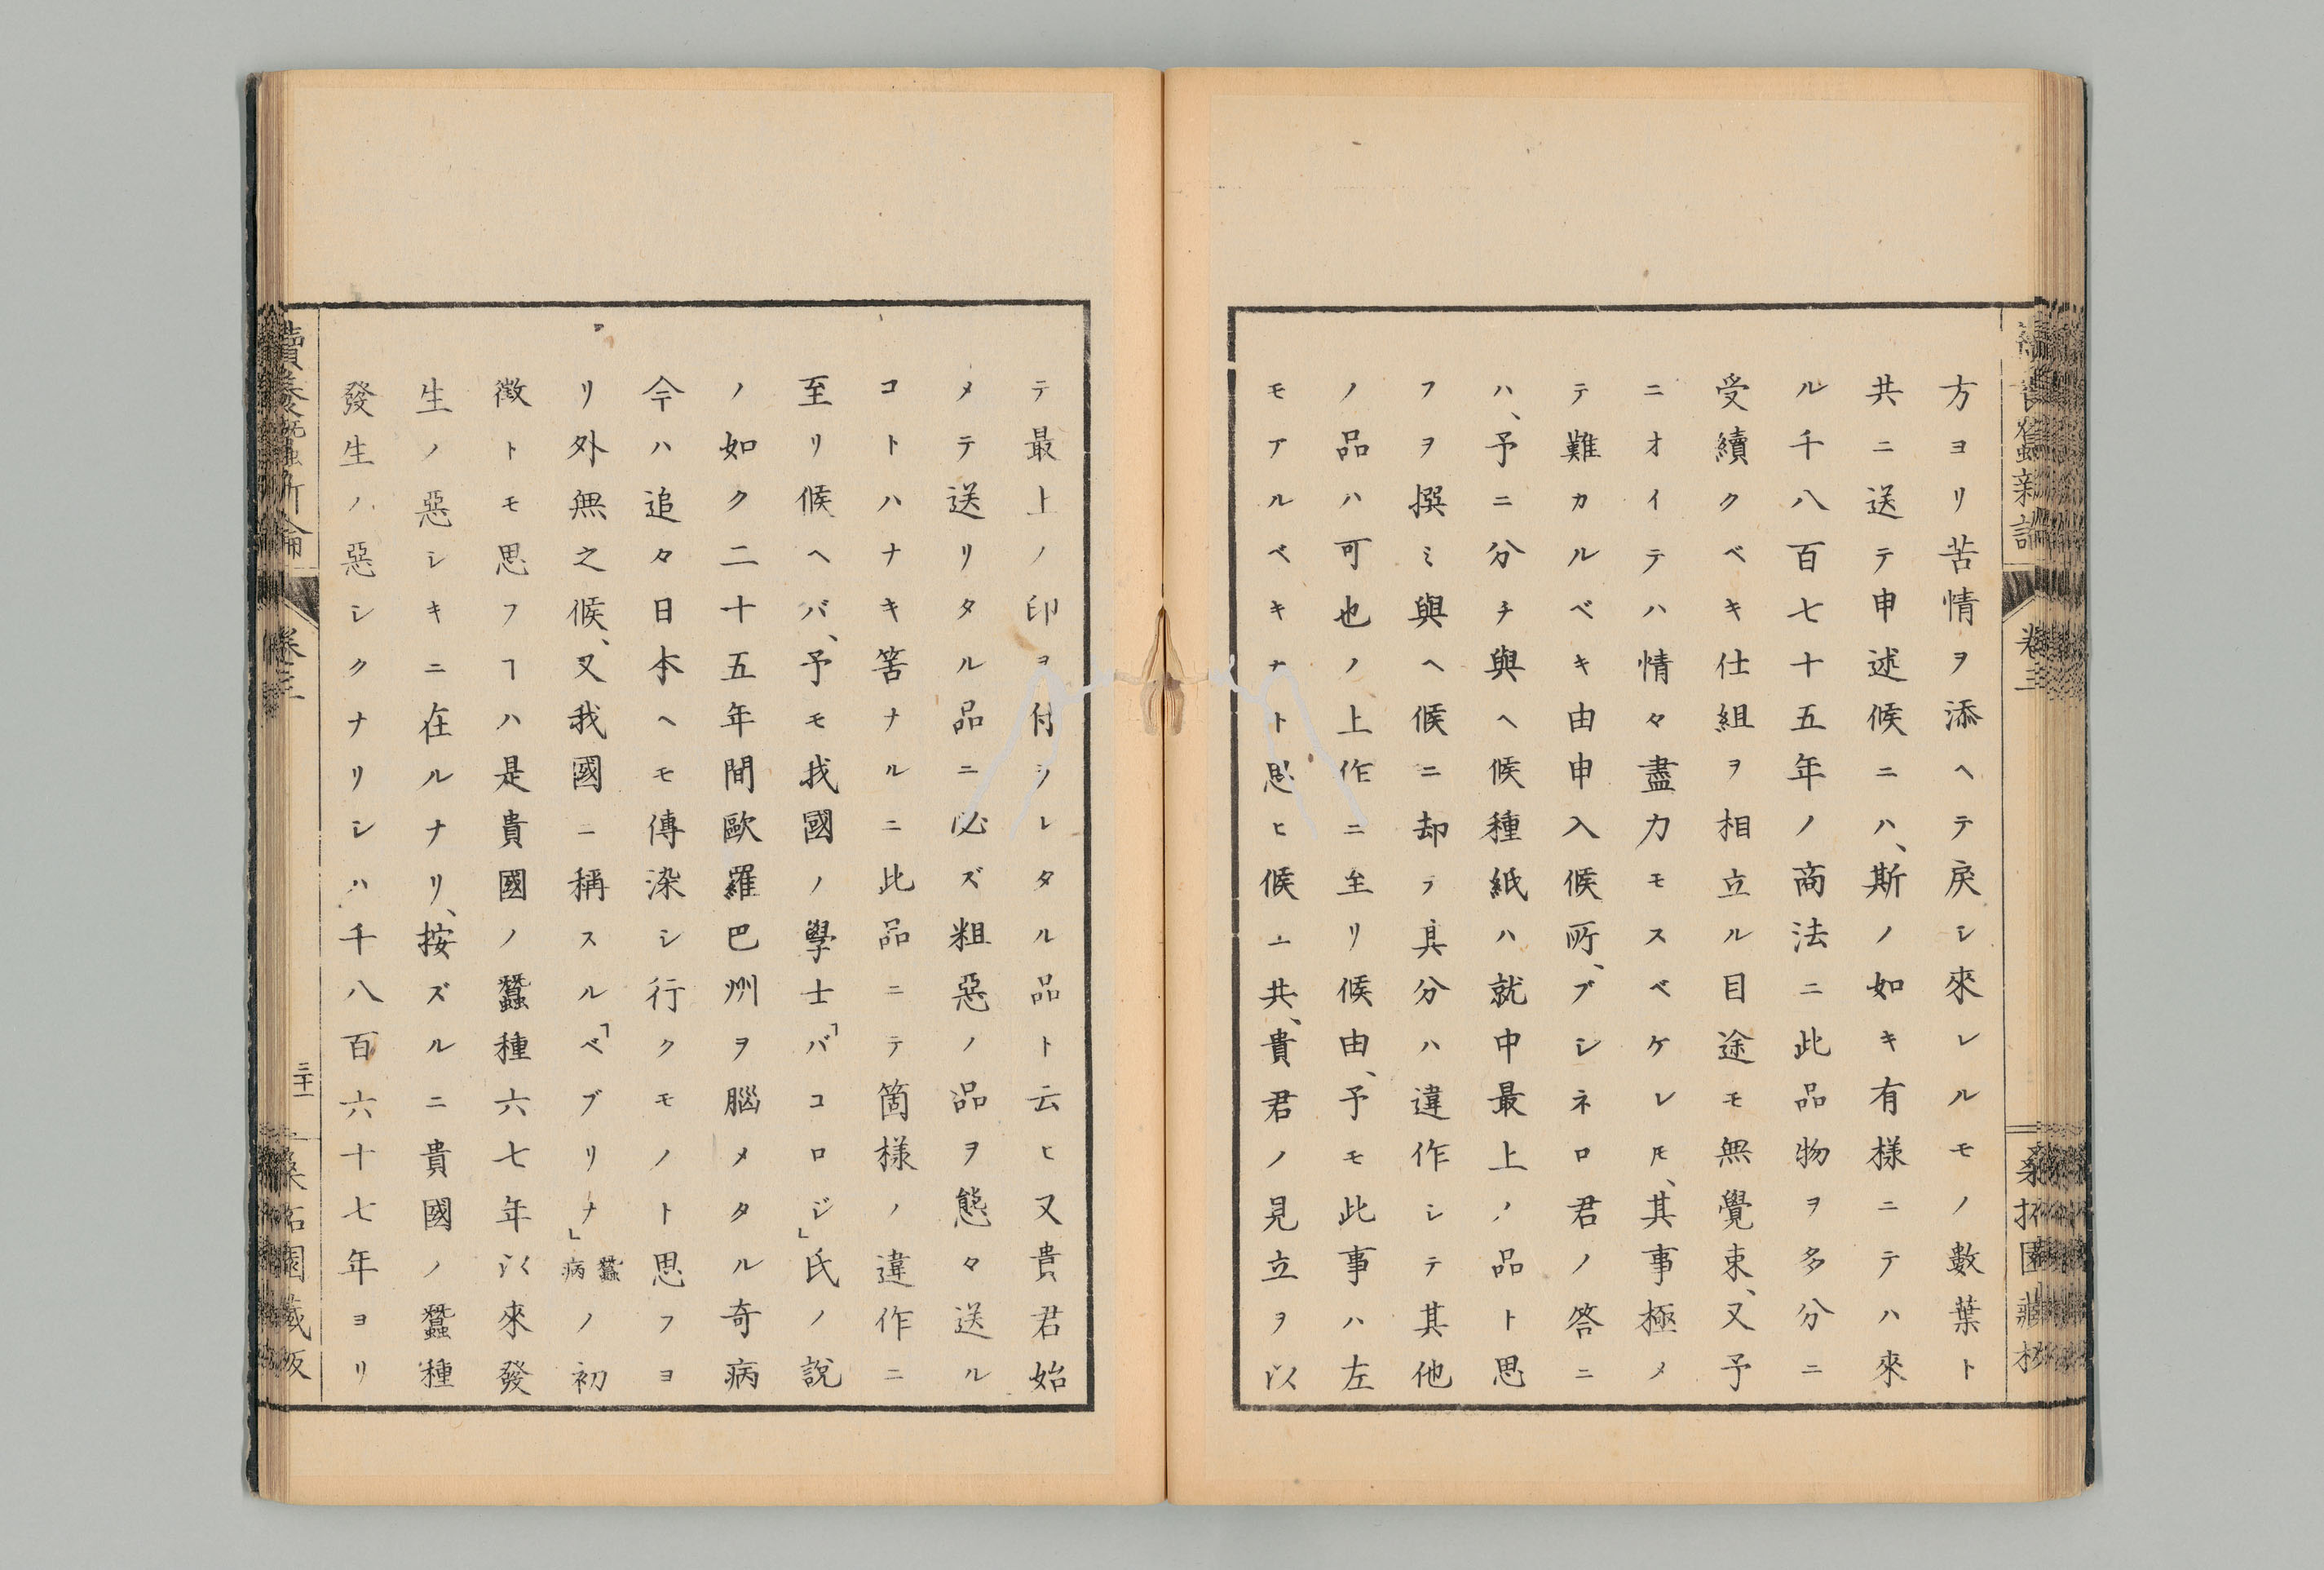 方ヨリ苦情ヲ添ヘテ戻シ來レルモノ數葉ト
共ニ送テ申述候ニハ、斯ノ如キ有樣ニテハ來
ル千八百七十五年ノ商法ニ此品物ヲ多分ニ
受續クベキ仕組ヲ相立ル目途モ無覺束、又予
ニオイテハ情々盡力モスベケレ𪜈、其事極メ
テ難カルベキ由申入候所、ブシネロ君ノ答ニ
ハ、予ニ分チ與ヘ候種紙ハ就中最上ノ品ト思
フヲ撰ミ與ヘ候ニ却テ其分ハ違作シテ其他
ノ品ハ可也ノ上作ニ至リ候由、予モ此事ハ左
モアルベキナト思ヒ候ヱ共、貴君ノ見立ヲ以
テ最上ノ印ヲ付ラレタル品ト云ヒ又貴君始
メテ送リタル品ニ必ズ粗惡ノ品ヲ態々送ル
コトハナキ筈ナルニ此品ニテ箇樣ノ違作ニ
至リ候ヘバ、予モ我國ノ學士「バコロジ」氏ノ說
ノ如ク二十五年間歐羅巴州ヲ腦メタル奇病
今ハ追々日本ヘモ傳染シ行クモノト思フヨ
リ外無之候、又我國ニ稱スル「ベブリナ」蠶病ノ初
徵トモ思フヿハ是貴國ノ蠶種六七年以來發
生ノ惡シキニ在ルナリ、按ズルニ貴國ノ蠶種
發生ノ惡シクナリシハ千八百六十七年ヨリ
卷三
三十一